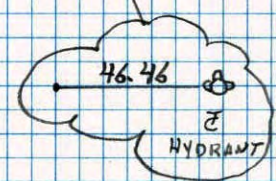 46.46
℄
HYDRANT